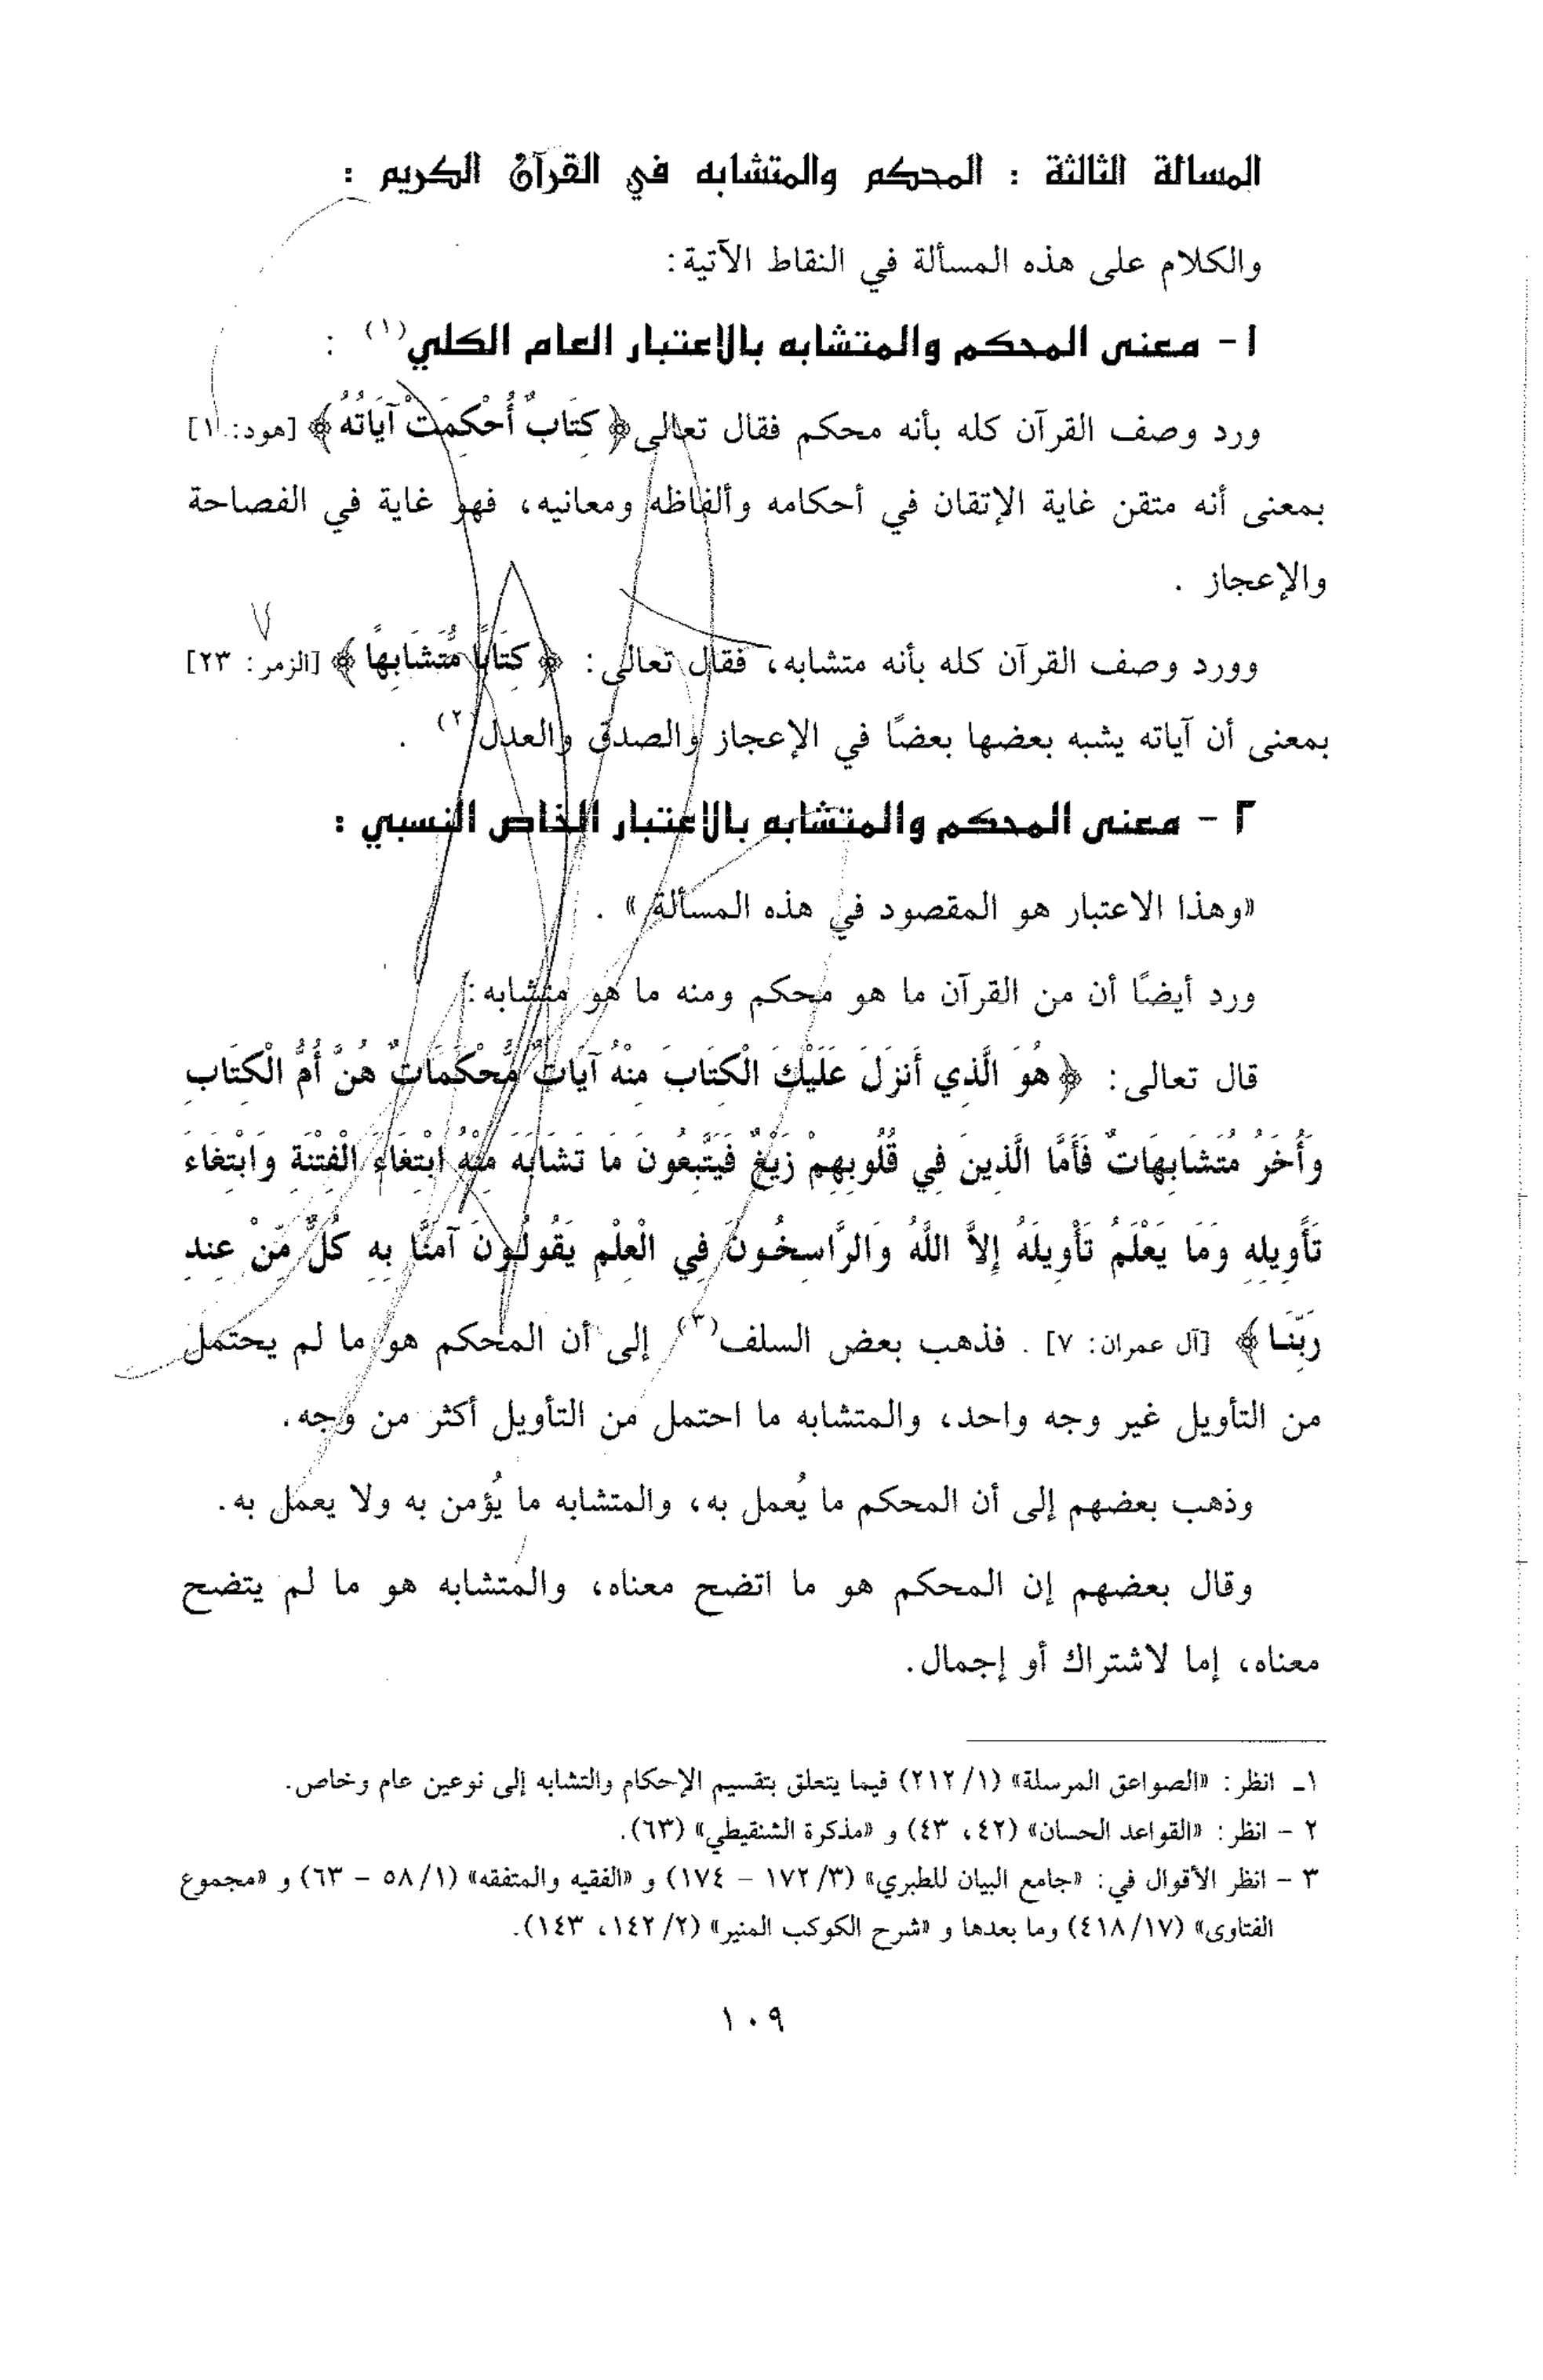 المسألة الثالثة : المحكم والمتشابه في القرآن الكريم :
والكلام على هذه المسألة في النقاط الآتية:
١ - معنى المحكم والمتشابه بالاعتبار العام الكلي(١) :
ورد وصف القرآن كله بأنه محكم فقال تعالى ﴿ كِتَابٌ أُحْكِمَتْ آيَاتُهُ ﴾ [هود: ١]
بمعنى أنه متقن غاية الإتقان في أحكامه وألفاظه ومعانيه، فهو غاية في الفصاحة
والإعجاز .
وورد وصف القرآن كله بأنه متشابه، فقال تعالى: ﴿ كِتَابًا مُّتَشَابِهًا ﴾ [الزمر: ٢٣]
بمعنى أن آياته يشبه بعضها بعضًا في الإعجاز والصدق والعدل(٢) .
٢ - معنى المحكم والمتشابه بالاعتبار الخاص النسبي :
«وهذا الاعتبار هو المقصود في هذه المسألة» .
ورد أيضًا أن من القرآن ما هو محكم ومنه ما هو متشابه:
قال تعالى: ﴿ هُوَ الَّذِي أَنزَلَ عَلَيْكَ الْكِتَابَ مِنْهُ آيَاتٌ مُّحْكَمَاتٌ هُنَّ أُمُّ الْكِتَابِ
وَأُخَرُ مُتَشَابِهَاتٌ فَأَمَّا الَّذِينَ فِي قُلُوبِهِمْ زَيْغٌ فَيَتَّبِعُونَ مَا تَشَابَهَ مِنْهُ ابْتِغَاءَ الْفِتْنَةِ وَابْتِغَاءَ
تَأْوِيلِهِ وَمَا يَعْلَمُ تَأْوِيلَهُ إِلاَّ اللَّهُ وَالرَّاسِخُونَ فِي الْعِلْمِ يَقُولُونَ آمَنَّا بِهِ كُلٌّ مِّنْ عِندِ
رَبِّنَا ﴾ [آل عمران: ٧] . فذهب بعض السلف(٣) إلى أن المحكم هو ما لم يحتمل
من التأويل غير وجه واحد، والمتشابه ما احتمل من التأويل أكثر من وجه.
وذهب بعضهم إلى أن المحكم ما يُعمل به، والمتشابه ما يُؤمن به ولا يعمل به.
وقال بعضهم إن المحكم هو ما اتضح معناه، والمتشابه هو ما لم يتضح
معناه، إما لاشتراك أو إجمال.
١ـ انظر: «الصواعق المرسلة» (١/ ٢١٢) فيما يتعلق بتقسيم الإحكام والتشابه إلى نوعين عام وخاص.
٢ - انظر: «القواعد الحسان» (٤٢، ٤٣) و «مذكرة الشنقيطي» (٦٣).
٣ - انظر الأقوال في: «جامع البيان للطبري» (٣/ ١٧٢ - ١٧٤) و «الفقيه والمتفقه» (١/ ٥٨ - ٦٣) و «مجموع
الفتاوى» (١٧/ ٤١٨) وما بعدها و «شرح الكوكب المنير» (٢/ ١٤٢، ١٤٣).
١٠٩